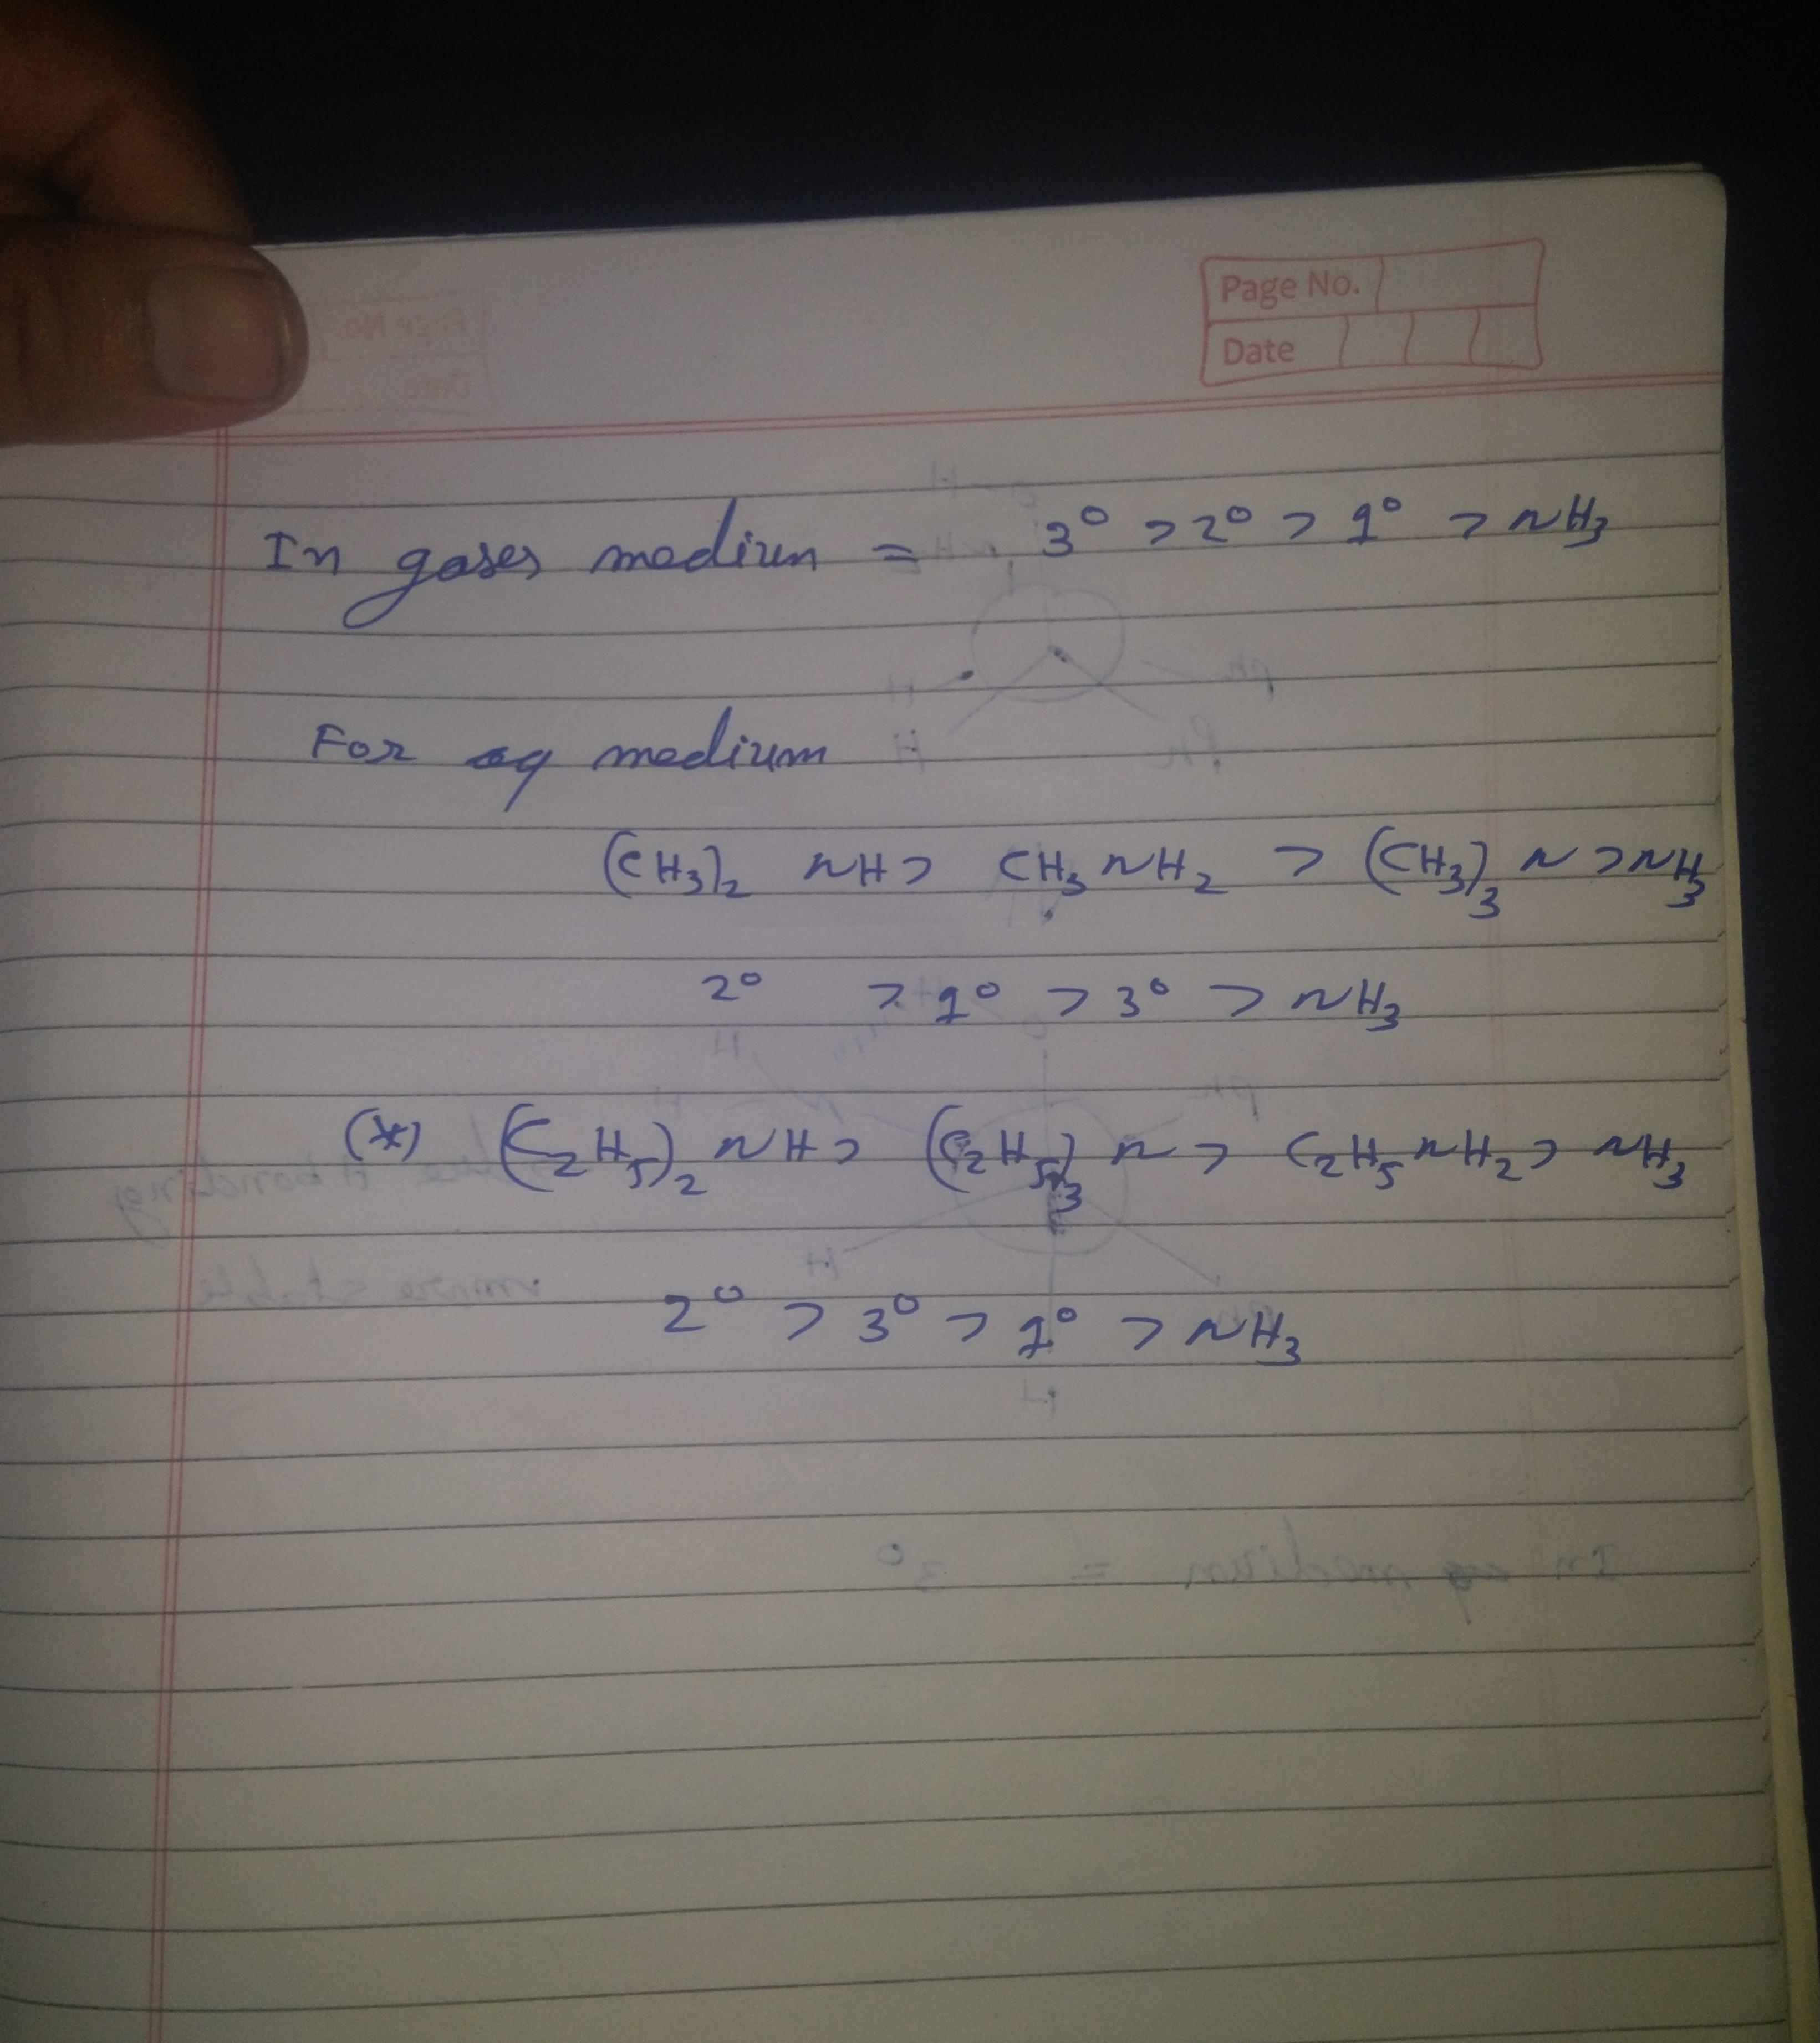 Page No.
Date
In gases medium = 3° > 2° > 1° > NH₃
For aq medium
(CH₃)₂ NH > CH₃NH₂ > (CH₃)₃ N > NH₃
2° > 1° > 3° > NH₃
(*) (C₂H₅)₂ NH > (C₂H₅)₃ N > C₂H₅NH₂ > NH₃
2° > 3° > 1° > NH₃